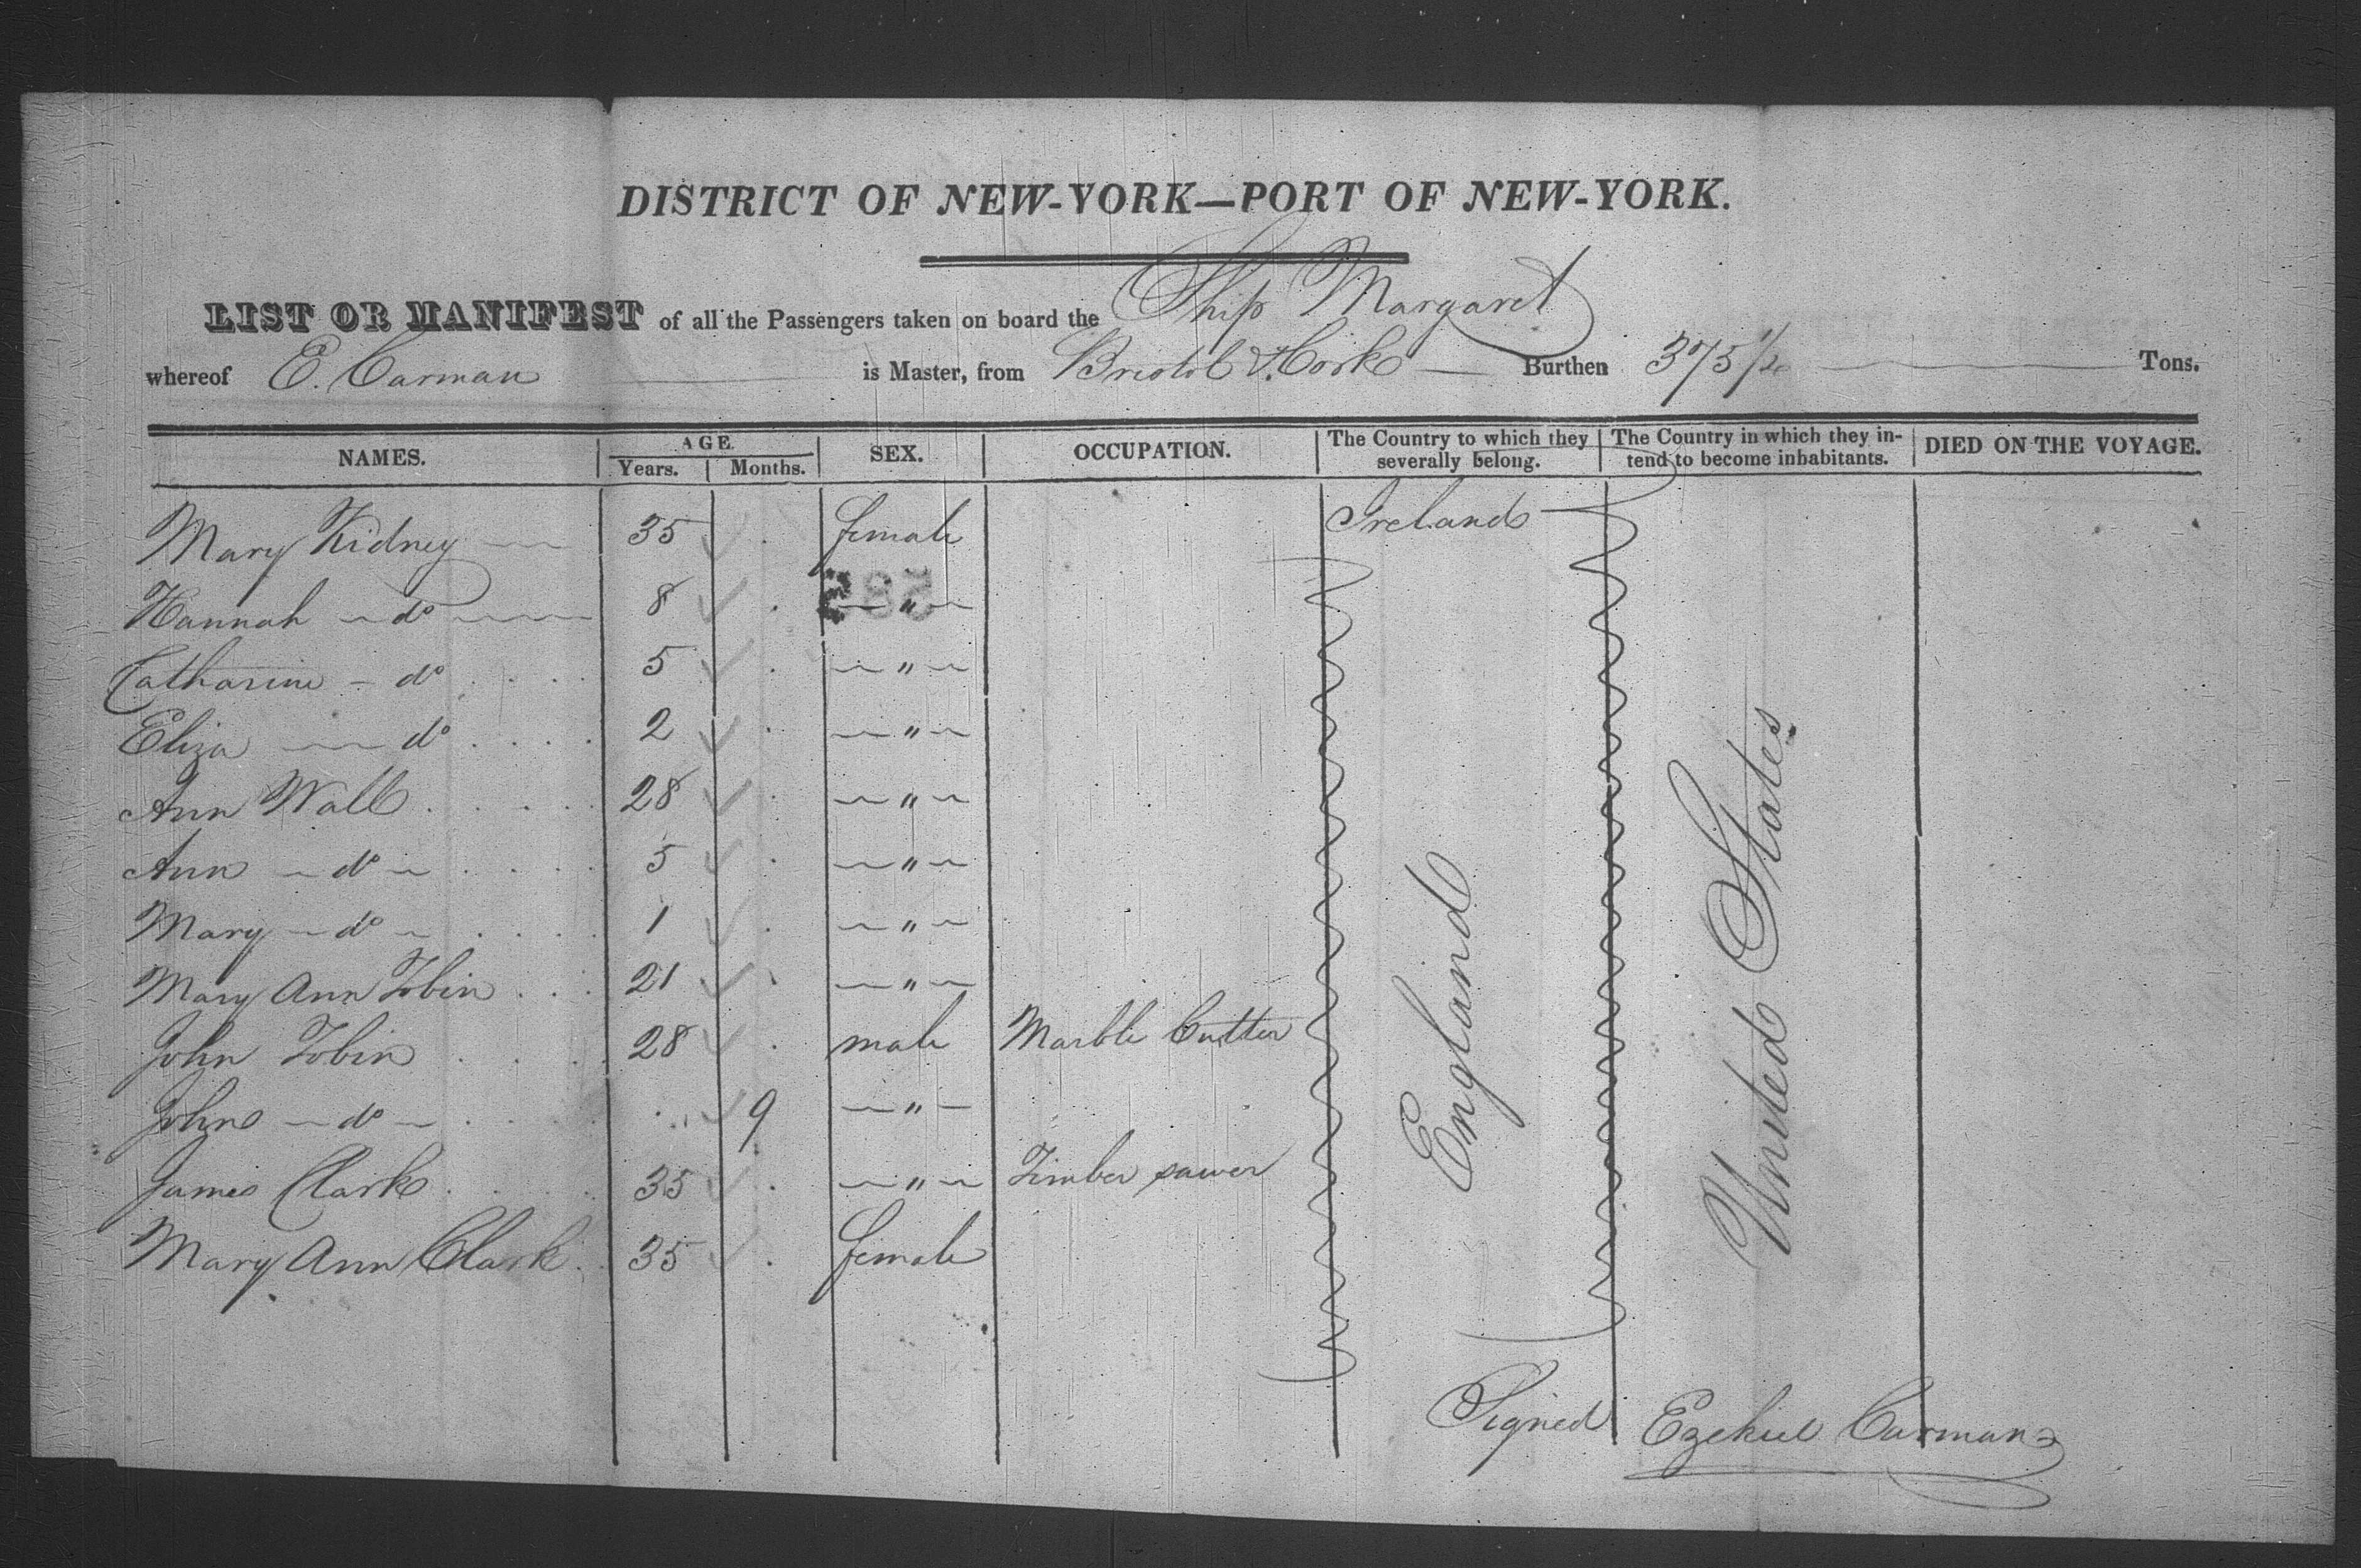 DISTRICT OF NEW-YORK—PORT OF NEW-YORK.
LIST OR MANIFEST of all the Passengers taken on board the Ship Margaret
whereof E. Carman is Master, from Bristol & Cork Burthen 375 1/2 Tons.
NAMES. AGE. Years. Months. SEX. OCCUPATION. The Country to which they severally belong. The Country in which they intend to become inhabitants. DIED ON THE VOYAGE.
Mary Kidney 35 female Ireland
Hannah do 8 "
Catharine do 5 "
Eliza do 2 "
Ann Wall 28 "
Ann do 5 "
Mary do 1 "
Mary Ann Tobin 21 "
John Tobin 28 male Marble Cutter
John do 9 "
James Clark 35 " Timber sawer
Mary Ann Clark 35 female
England
United States
Signed Ezekiel Carman